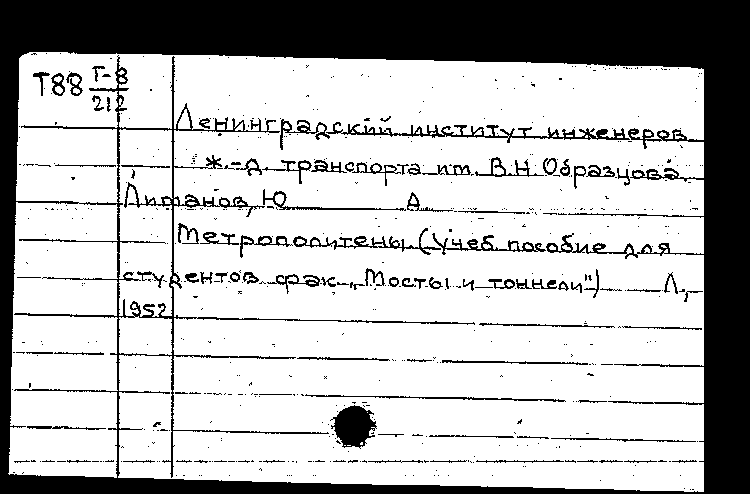 Т88 Г-8
212
Ленинградский институт инженеров
ж.-д. транспорта им. В.Н. Образцова.
Лиманов, Ю А.
Метрополитены. (Учеб. пособие для
студентов фак. „Мосты и тоннели") Л.,
1952